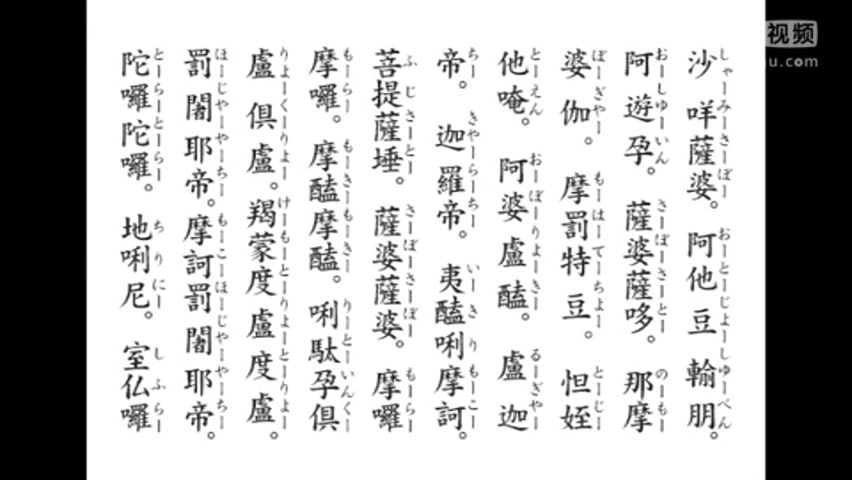 沙咩薩婆。阿他豆輸朋。
しゃーみーさーぼー おーとーじょーしゅーべん
阿遊孕。薩婆薩哆。那摩
おーしゅーいん さーぼーさーとー のーもー
婆伽。摩罰特豆。怛姪
ぼーぎゃー もーはーてーちょー とーじー
他唵。阿婆盧醯。盧迦
とーえん おーぼーりょーきー るーぎゃー
帝。迦羅帝。夷醯唎摩訶。
ちー きゃーらーちー いーきりもーこー
菩提薩埵。薩婆薩婆。摩囉
ふじさーとー さーぼーさーぼー もーらー
摩囉。摩醯摩醯。唎駄孕俱
もーらー もーきーもーきー りーとーいんくー
盧俱盧。羯蒙度盧度盧。
りょーくーりょー けーもーとーりょーとーりょー
罰闍耶帝。摩訶罰闍耶帝。
ほーじゃーやーちー もーこーほーじゃーやーちー
陀囉陀囉。地唎尼。室仏囉
とーらーとーらー ちりにー しふらー
视频
u.com